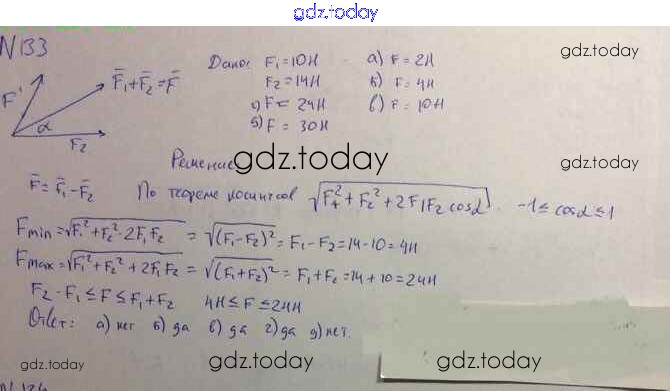 gdz.today
N 133
Дано: F₁=10Н а) F=2Н
F₂=14Н б) F=4Н
г) F=24Н в) F=10Н
д) F=30Н
gdz.today
F₁
F̄₁+F̄₂=F̄
α
F₂
Решение
gdz.today
gdz.today
F̄=F̄₁-F̄₂ По теореме косинусов √F₁²+F₂²+2F₁F₂cosα. -1≤cosα≤1
Fmin=√F₁²+F₂²-2F₁F₂ = √(F₁-F₂)² = F₁-F₂=14-10=4Н
Fmax=√F₁²+F₂²+2F₁F₂ = √(F₁+F₂)² = F₁+F₂=14+10=24Н
F₂-F₁≤F≤F₁+F₂ 4Н≤F≤24Н
Ответ: а) нет б) да в) да г) да д) нет.
gdz.today
gdz.today
gdz.today